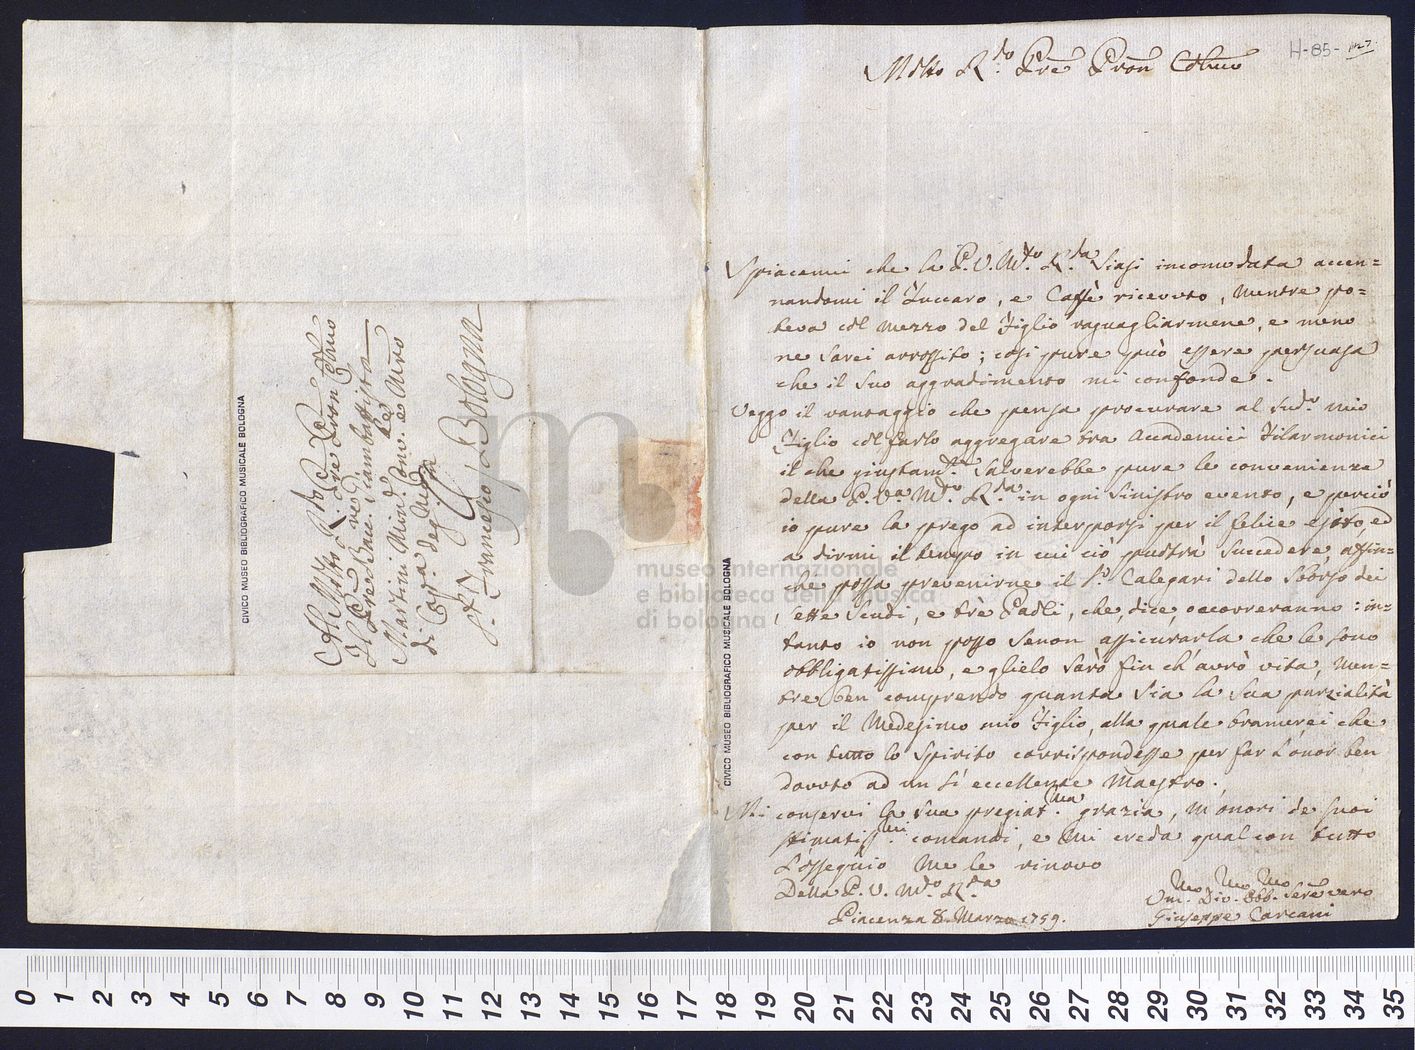 H-85-127
Molto R.do Pre Pron Colmo
Spiacemi che la P.V. M.to R.da siasi incomodata accen=
nandomi il Zuccaro, e Caffè ricevuto, mentre po=
teva col mezzo del Figlio raguagliarmene, e meno
ne sarei arrossito; così pure può essere persuasa
che il suo aggradimento mi confonde.
Veggo il vantaggio che pensa procurare al sud.o mio
Figlio col farlo aggregare tra Accademici Filarmonici
il che giustam.te salverebbe pure le convenienze
della P.V.a M.to R.da in ogni sinistro evento, e perciò
io pure la prego ad interporsi per il felice esito, ed
a dirmi il tempo in cui ciò puotrà succedere, affin=
chè possa prevenirne il S.r Calegari dello sborso dei
sette Scudi, e trè Paoli, che, dice, occorreranno: in=
tanto io non posso senon assicurarla che le sono
obbligatissimo, e glielo sarò fin ch'avrò vita, men=
tre ben comprendo quanta sia la sua parzialità
per il Medesimo mio Figlio, alla quale bramerei che
con tutto lo spirito corrispondesse per far l'onor ben
dovuto ad un sì eccellente Maestro.
Mi conservi la sua pregiat.ma grazia, m'onori de suoi
stimatis.mi comandi, e mi creda qual con tutto
l'ossequio me le rinovo
Della P.V. M.to R.da
Piacenza 8. Marzo 1759.
Um. Div. Obb. Serv.e vero
Giuseppe Carcani
Al Molto R.do Pre
Pron Colmo
Il Pre Gianbattista
Martini Min. Con. e Mro
di Cap.a degn.
S. Francesco Bologna
CIVICO MUSEO BIBLIOGRAFICO MUSICALE BOLOGNA
CIVICO MUSEO BIBLIOGRAFICO MUSICALE BOLOGNA
museo internazionale
e biblioteca della musica
di bologna
0 1 2 3 4 5 6 7 8 9 10 11 12 13 14 15 16 17 18 19 20 21 22 23 24 25 26 27 28 29 30 31 32 33 34 35